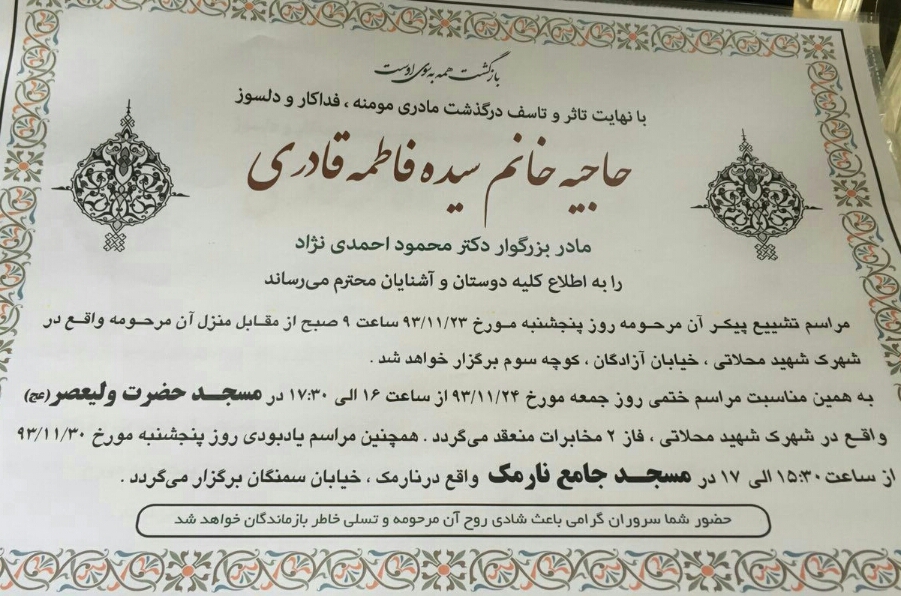 بازگشت همه به سوی اوست
با نهایت تاثر و تاسف درگذشت مادری مومنه ، فداکار و دلسوز
حاجیه خانم سیده فاطمه قادری
مادر بزرگوار دکتر محمود احمدی نژاد
را به اطلاع کلیه دوستان و آشنایان محترم می‌رساند
مراسم تشییع پیکر آن مرحومه روز پنجشنبه مورخ ۹۳/۱۱/۲۳ ساعت ۹ صبح از مقابل منزل آن مرحومه واقع در
شهرک شهید محلاتی ، خیابان آزادگان ، کوچه سوم برگزار خواهد شد .
به همین مناسبت مراسم ختمی روز جمعه مورخ ۹۳/۱۱/۲۴ از ساعت ۱۶ الی ۱۷:۳۰ در مسجد حضرت ولیعصر (عج)
واقع در شهرک شهید محلاتی ، فاز ۲ مخابرات منعقد می‌گردد . همچنین مراسم یادبودی روز پنجشنبه مورخ ۹۳/۱۱/۳۰
از ساعت ۱۵:۳۰ الی ۱۷ در مسجد جامع نارمک واقع درنارمک ، خیابان سمنگان برگزار می‌گردد .
حضور شما سروران گرامی باعث شادی روح آن مرحومه و تسلی خاطر بازماندگان خواهد شد